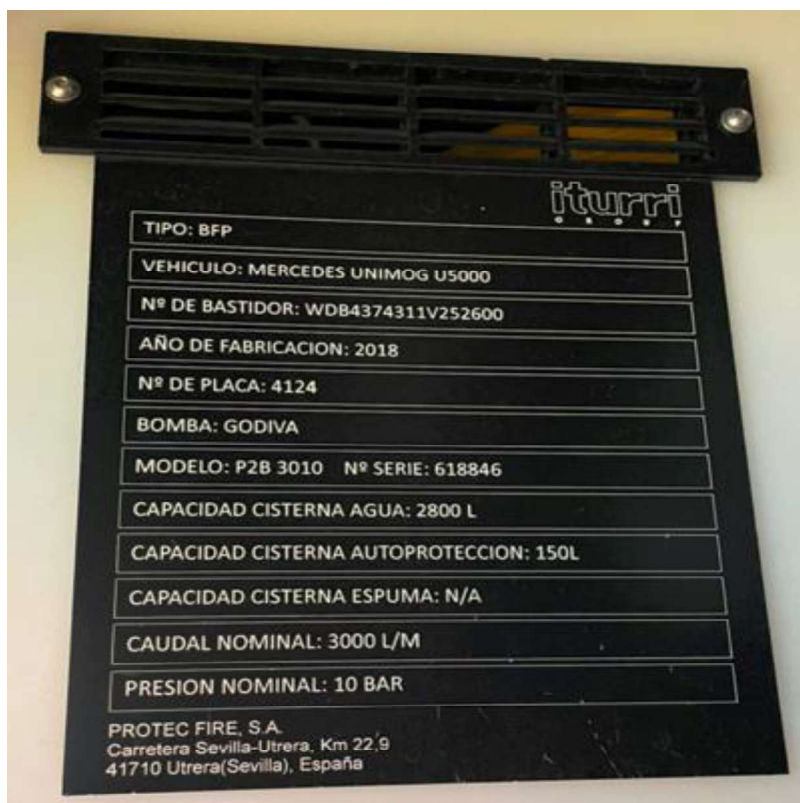 iturri
GROUP
TIPO: BFP
VEHICULO: MERCEDES UNIMOG U5000
Nº DE BASTIDOR: WDB4374311V252600
AÑO DE FABRICACION: 2018
Nº DE PLACA: 4124
BOMBA: GODIVA
MODELO: P2B 3010 Nº SERIE: 618846
CAPACIDAD CISTERNA AGUA: 2800 L
CAPACIDAD CISTERNA AUTOPROTECCION: 150L
CAPACIDAD CISTERNA ESPUMA: N/A
CAUDAL NOMINAL: 3000 L/M
PRESION NOMINAL: 10 BAR
PROTEC FIRE, S.A.
Carretera Sevilla-Utrera, Km 22,9
41710 Utrera(Sevilla), España